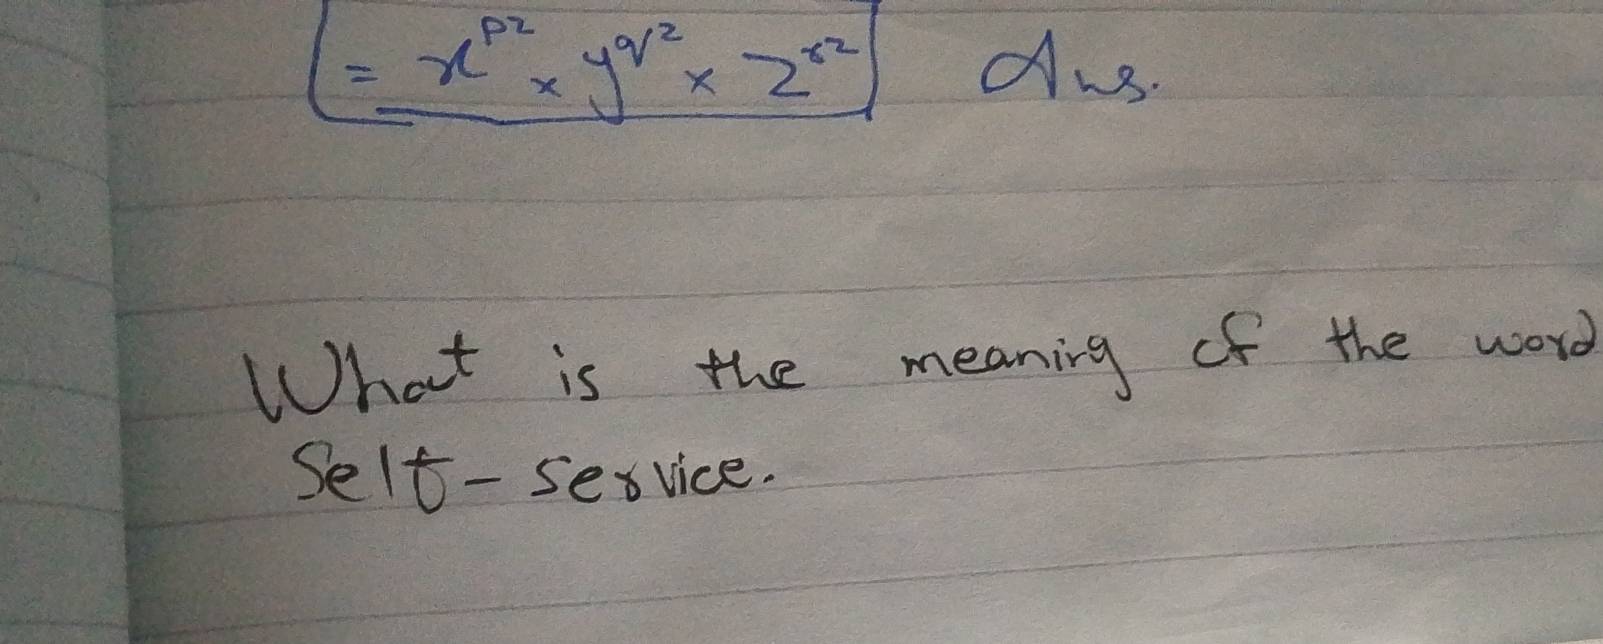 = x^p2 × y^q2 × z^r2 Ans.
What is the meaning of the word
Self-service.